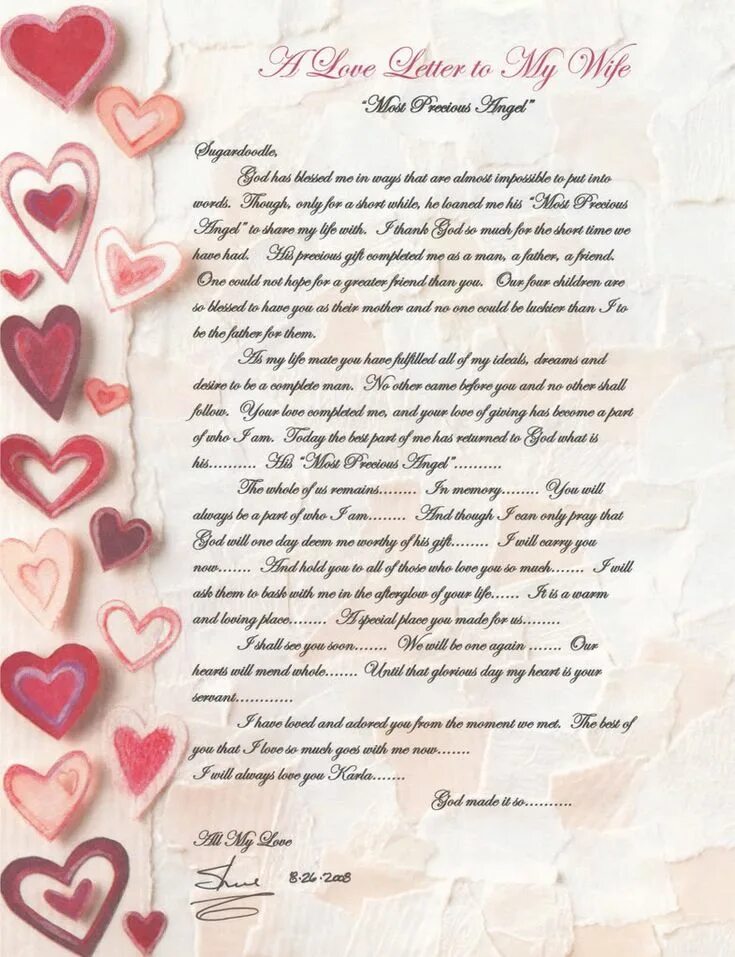 A Love Letter to My Wife
"Most Precious Angel"
Sugardoodle,
God has blessed me in ways that are almost impossible to put into
words. Though, only for a short while, he loaned me his "Most Precious
Angel" to share my life with. I thank God so much for the short time we
have had. His precious gift completed me as a man, a father, a friend.
One could not hope for a greater friend than you. Our four children are
so blessed to have you as their mother and no one could be luckier than I to
be the father for them.
As my life mate you have fulfilled all of my ideals, dreams and
desire to be a complete man. No other came before you and no other shall
follow. Your love completed me, and your love of giving has become a part
of who I am. Today the best part of me has returned to God what is
his.......... His "Most Precious Angel"..........
The whole of us remains........ In memory........ You will
always be a part of who I am........ And though I can only pray that
God will one day deem me worthy of his gift........ I will carry you
now....... And hold you to all of those who love you so much....... I will
ask them to bask with me in the afterglow of your life...... It is a warm
and loving place........ A special place you made for us........
I shall see you soon....... We will be one again ....... Our
hearts will mend whole....... Until that glorious day my heart is your
servant............
I have loved and adored you from the moment we met. The best of
you that I love so much goes with me now.......
I will always love you Karla.......
God made it so..........
All My Love
8-26-2008